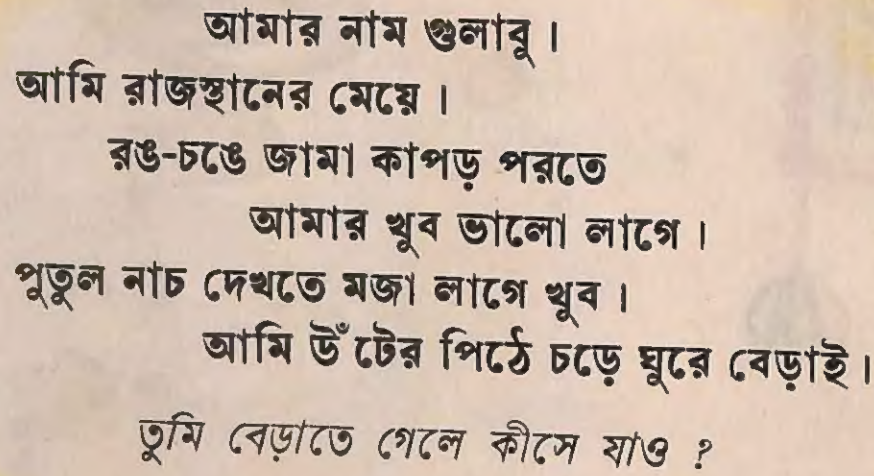 আমার নাম গুলাবু।
আমি রাজস্থানের মেয়ে।
রঙ-চঙে জামা কাপড় পরতে
আমার খুব ভালো লাগে।
পুতুল নাচ দেখতে মজা লাগে খুব।
আমি উঁটের পিঠে চড়ে ঘুরে বেড়াই।
তুমি বেড়াতে গেলে কীসে যাও ?